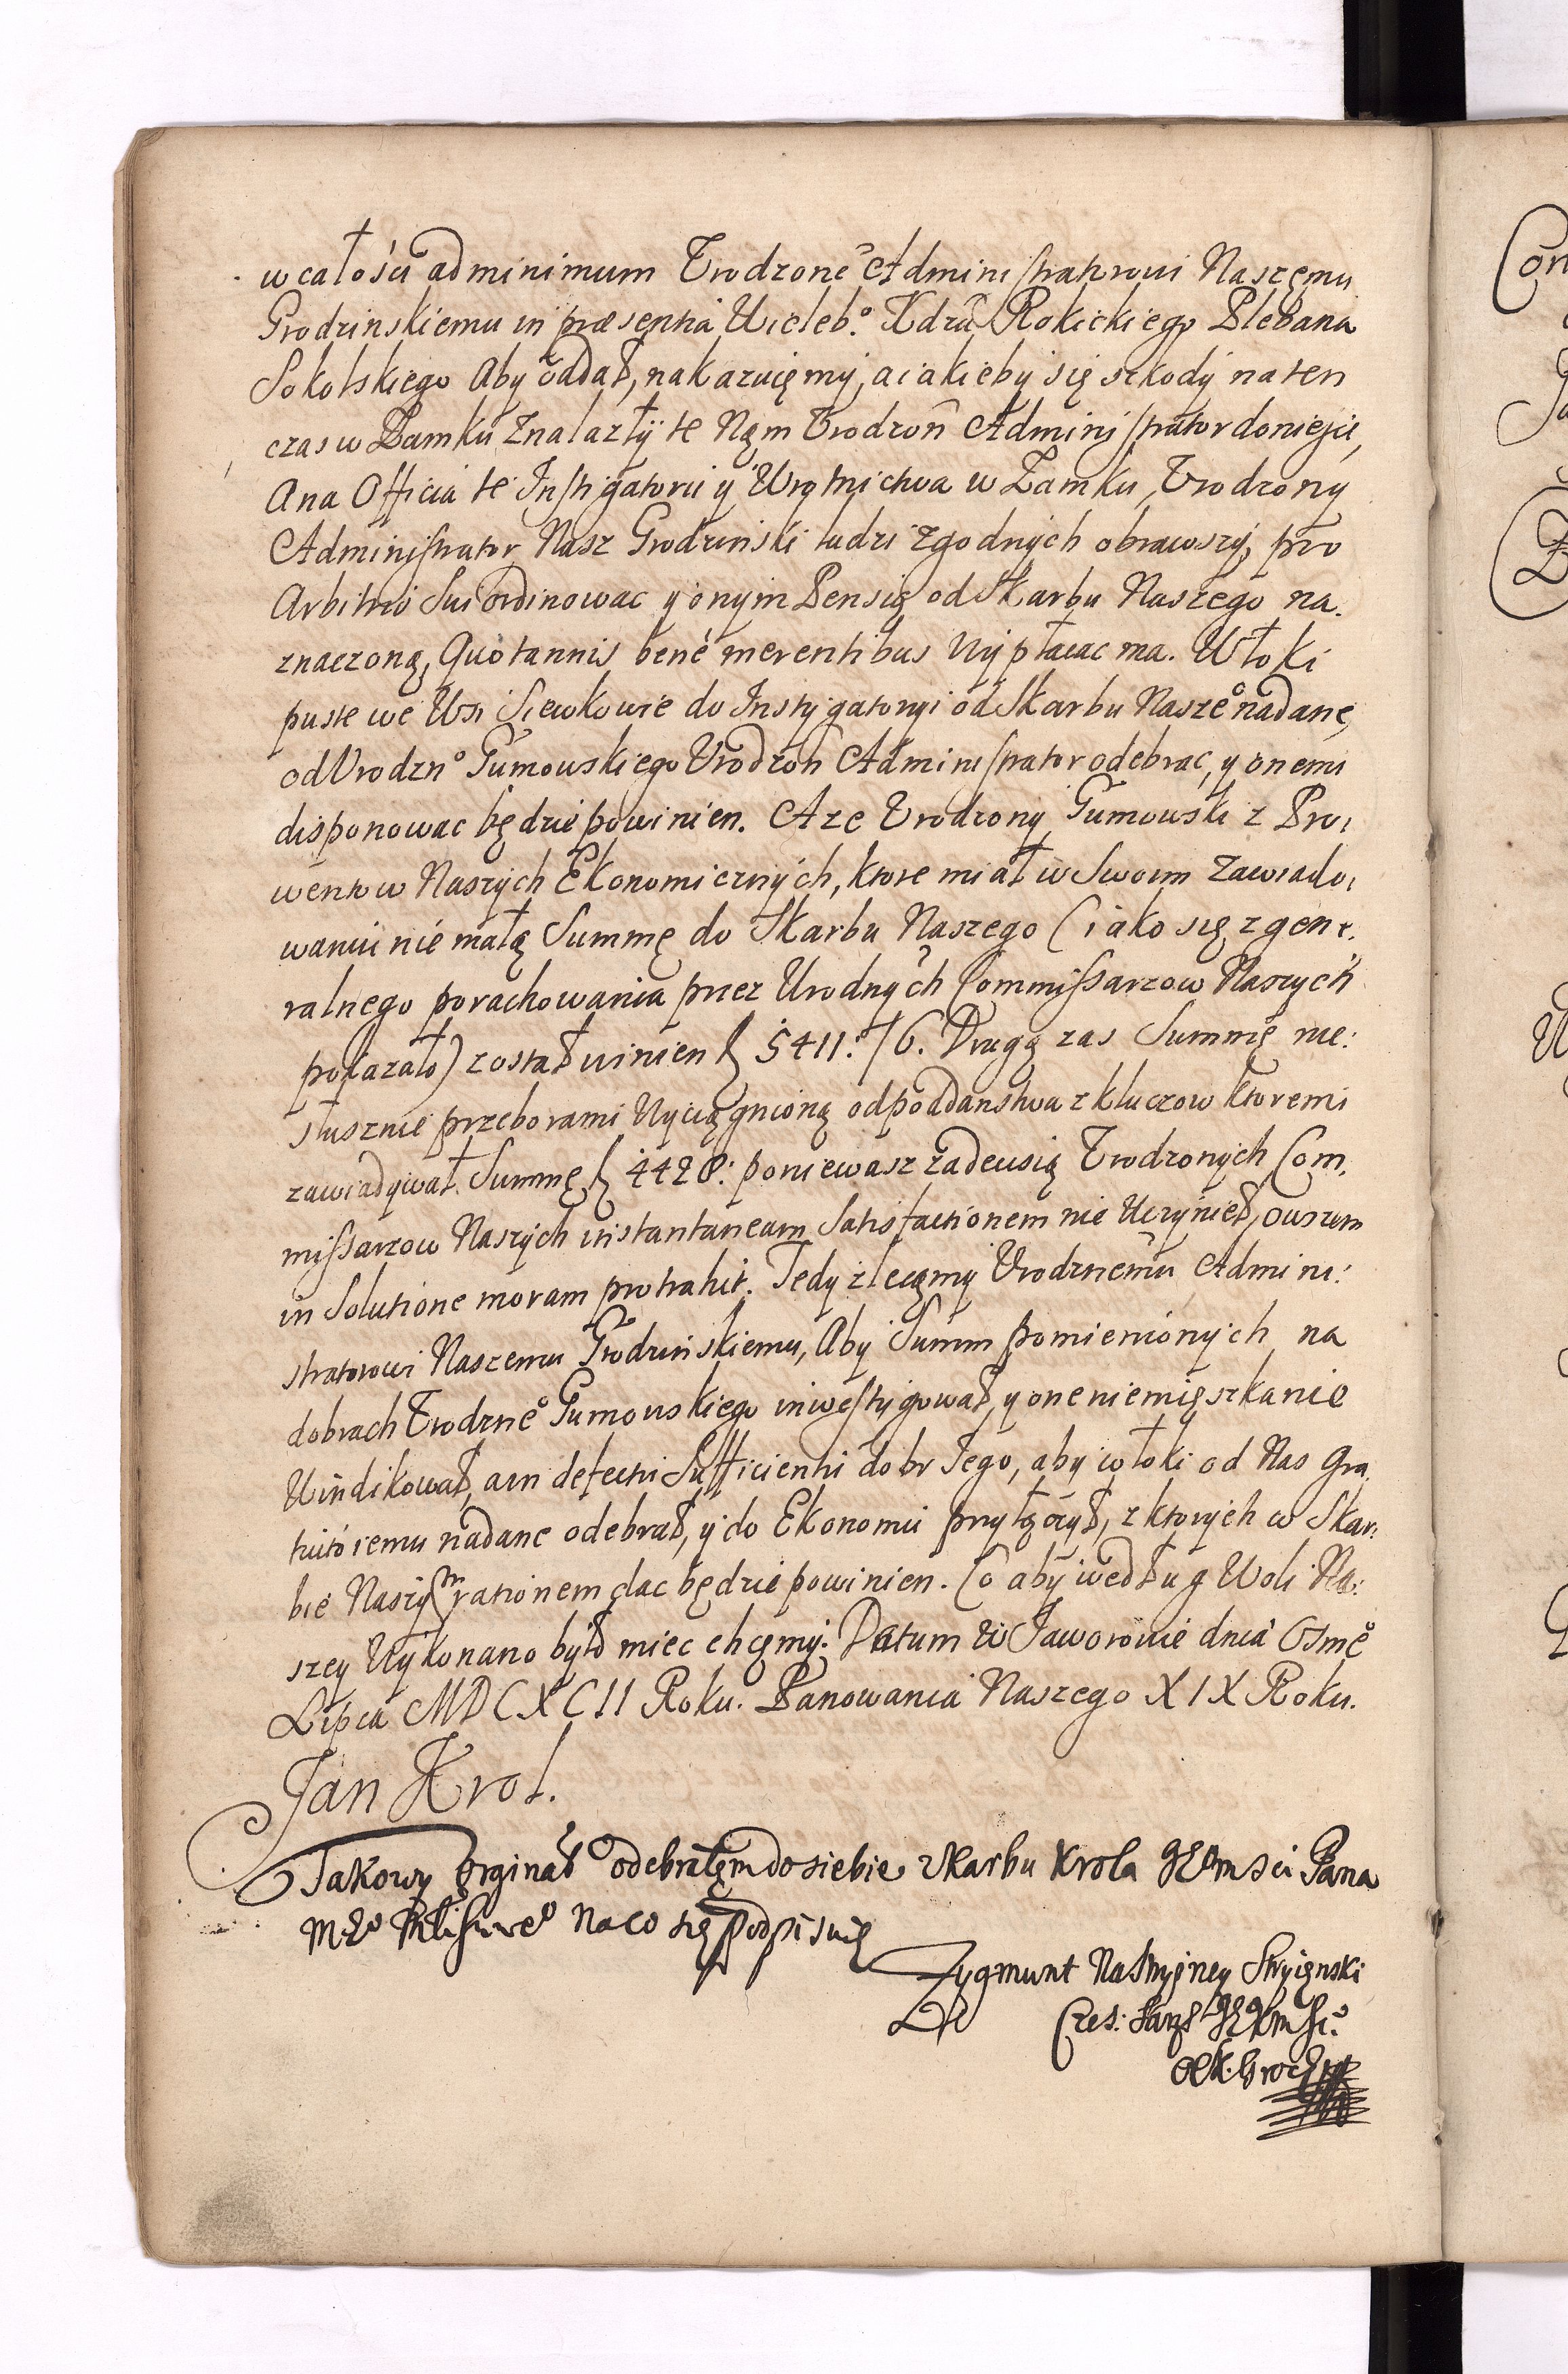 w całości ad minimum Vrodzone̊ Administratorowi Naszęmu
Grodzinskiemu in præsentia Wieleb.º Xdza Rokickiego Plebana
Sokolskiego Aby oddał, nakazuięmy, a iakieby się szkody na ten
czas w Zamku Znalazły te Nąm Vrodzon̄ Administrator doniesie,
A na Officia te Instigatorii y Wrotnictwa w Zamku, Vrodzony
Administrator Nasz Grodzinski ludzi zgodnych obrawszy, pro
Arbitrio Sui ordinowac y onym Pensią od Skarbu Naszego na.
znaczoną, Quotannis bene merentibus Wypłacac ma. Włoki
puste we Wsi Siewkowie do Instygatoryi od Skarbu Nasze̊ nadane,
od Vrodzn° Gumowskiego Vrodzon̄ Administrator odebrac, y onemi
disponowac będzie powinien. A ze Vrodzony Gumowski z Pro,
wentow Naszych Ekonomicznych, ktore miał w Swoim Zawiado,
waniu nie małą Summę do Skarbu Naszego (iako się z gene.
ralnego porachowania przez Urodnych Commissarzow Naszych
pokazało) został winien f 5411:/6. Drugą zas Summę nie:
słusznie przeborami Wyciągnioną od poddanstwa z kluczow ktoremi
zawiadywał Summę f 4428: poniewasz za decisią Vrodzonych Com,
missarzow Naszych instantaneam Satisfactionem nie Uczynieł, owszem
in Solutione moram protrahit. Tedy zlecamy Vrodznemu Admini:
stratorowi Naszemu Grodzinskiemu, Aby Summ pomienionych na
dobrach Vrodzne̊ Gumowskiego inwestygował, y one niemięszkanie
Windikował, a in defectu Sufficienti dobr Iego, aby włoki od Nas gra,
tuito iemu nadane odebrał, y do Ekonomii przyłączył, z ktorych w Skar:
bie Naszym rationem dac będzie powinien. Co aby według Woli Na:
szey Wykonano było miec chcęmy. Datum w Jaworowie dnia Osme̊
Lipca MDCXCII Roku. Panowania Naszego XIX Roku.
Jan Krol.
Takowy Orginał odebrałęm do siebie z Skarbu Krola JEmsci Pana
Mº Miłosciwe° na co się podpisuię
Zygmunt Stryięnski